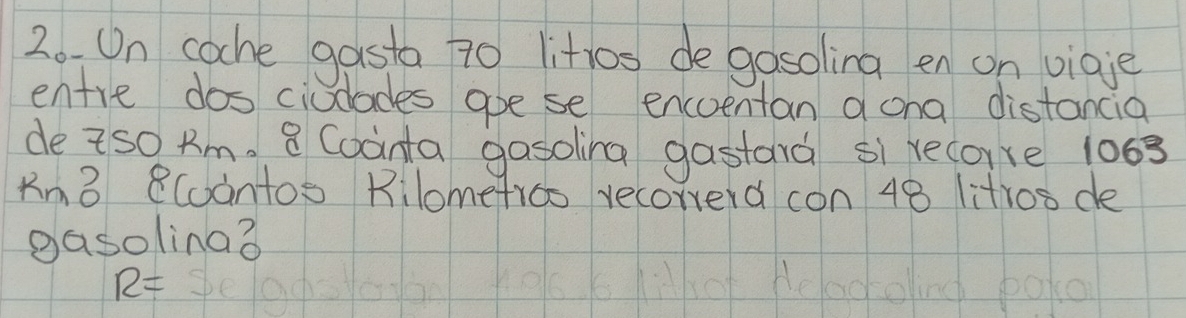 2.- Un coche gasta 70 litros de gasolina en un viaje
entre dos ciudades que se encuentan a una distancia
de 750 Km. ¿Cuánta gasolina gastará si recorre 1063
Km? ¿Cuántos Kilometros recorrerá con 48 litros de
gasolina?
R= Se gastaran 106.6 litros de gasolina para